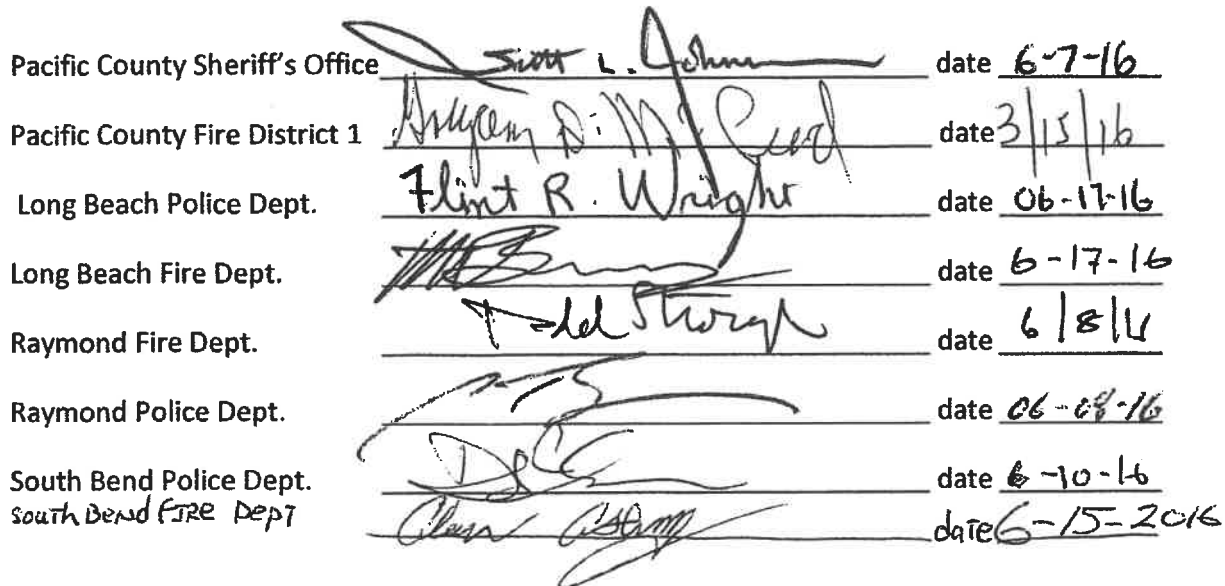 Pacific County Sheriff's Office Scott L. Johnson date 6-7-16
Pacific County Fire District 1 D. date 3/15/16
Long Beach Police Dept. Flint R. Wright date 06-17-16
Long Beach Fire Dept. date 6-17-16
Raymond Fire Dept. Todd date 6/8/16
Raymond Police Dept. date 06-08-16
South Bend Police Dept. date 6-10-16
South Bend FIRE Dept date 6-15-2016